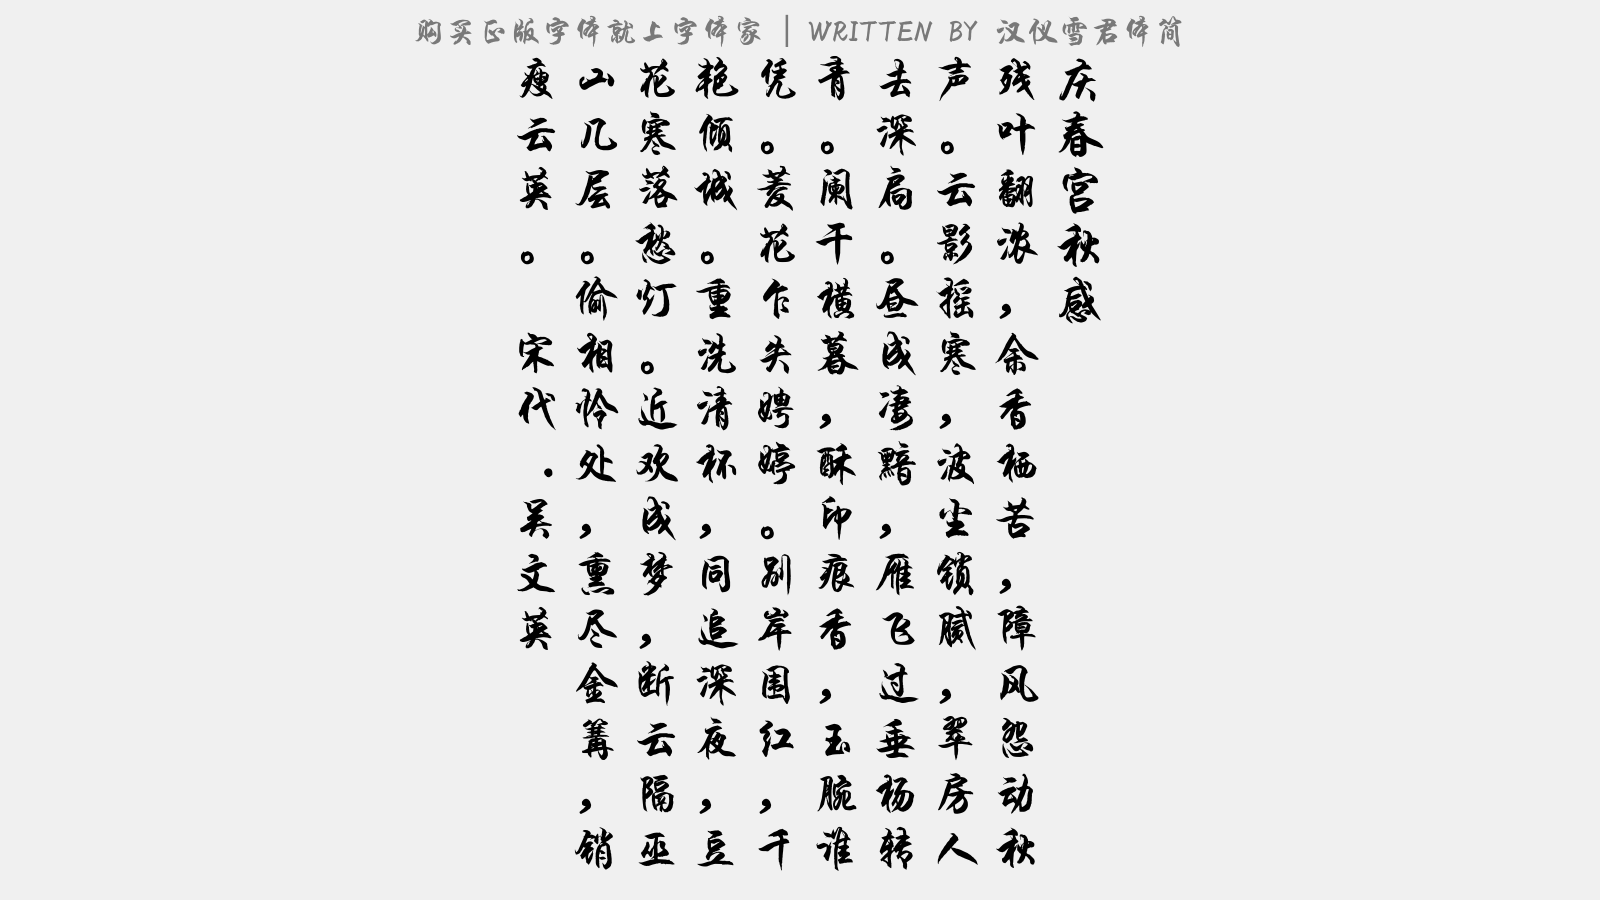 购买正版字体就上字体家 | WRITTEN BY 汉仪雪君体简
庆春宫秋感
残叶翻浓，余香栖苦，障风怨动秋
声。云影摇寒，波尘锁腻，翠房人
去深扃。昼成凄黯，雁飞过垂杨转
青。阑干横暮，酥印痕香，玉腕谁
凭。菱花乍失娉婷。别岸围红，千
艳倾诚。重洗清杯，同追深夜，豆
花寒落愁灯。近欢成梦，断云隔巫
山几层。偷相怜处，熏尽金篝，销
瘦云英。 宋代.吴文英